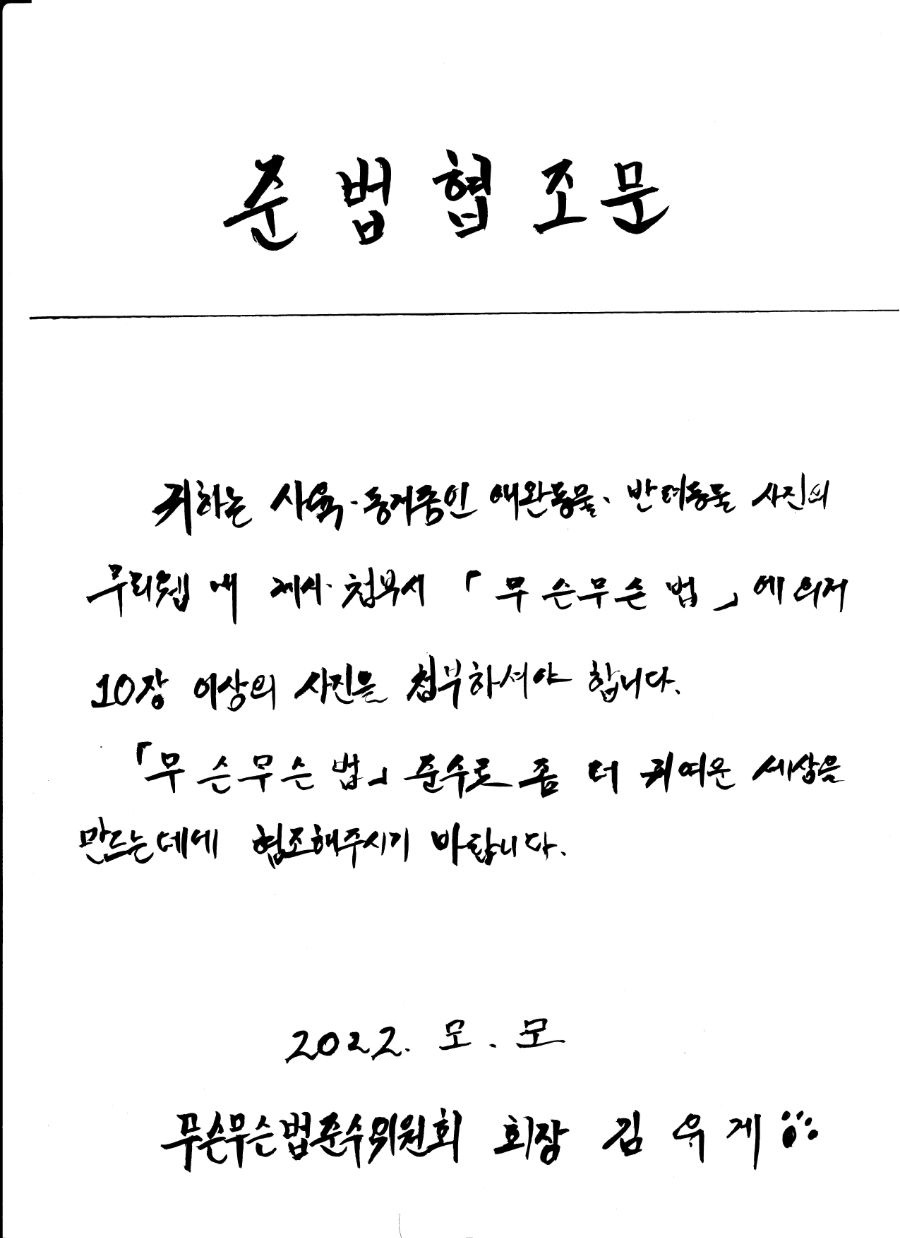 준법협조문
귀하는 사육·동거중인 애완동물, 반려동물 사진의
루리웹 내 게시·첨부시 「무슨무슨법」에 의거
10장 이상의 사진을 첨부하셔야 합니다.
「무슨무슨법」 준수로 좀 더 귀여운 세상을
만드는데에 협조해주시기 바랍니다.
2022. 모. 모
무슨무슨법준수위원회 회장 김유게